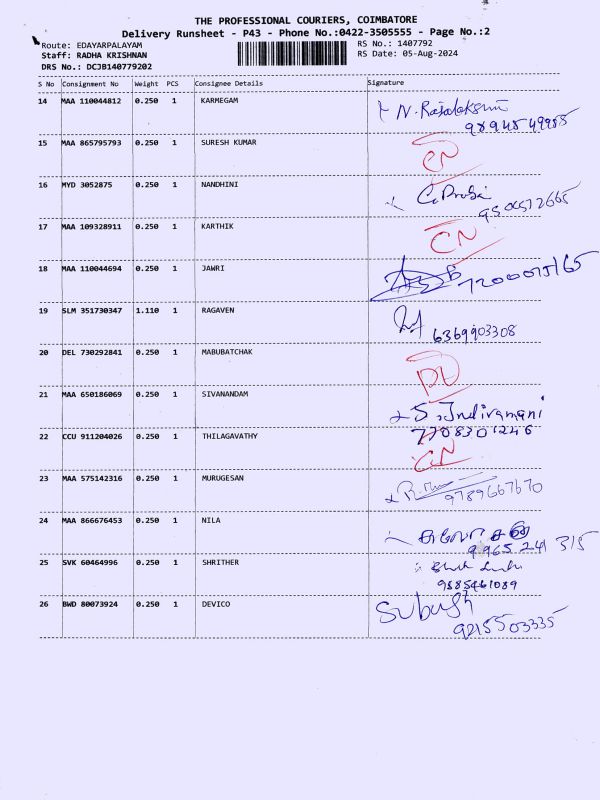 THE PROFESSIONAL COURIERS, COIMBATORE
Delivery Runsheet - P43 - Phone No.:0422-3505555 - Page No.:2
Route: EDAYARPALAYAM RS No.: 1407792
Staff: RADHA KRISHNAN RS Date: 05-Aug-2024
DRS No.: DCJB140779202
S No Consignment No Weight PCS Consignee Details Signature
14 MAA 110044812 0.250 1 KARMEGAM N. Rajalakshmi
15 MAA 865795793 0.250 1 SURESH KUMAR CN
16 MYD 3052875 0.250 1 NANDHINI
17 MAA 109328911 0.250 1 KARTHIK CN
18 MAA 110044694 0.250 1 JAWRI
19 SLM 351730347 1.110 1 RAGAVEN
6369903308
20 DEL 730292841 0.250 1 MABUBATCHAK
21 MAA 650186069 0.250 1 SIVANANDAM S. Indiramani
7708301246
22 CCU 911204026 0.250 1 THILAGAVATHY CN
23 MAA 575142316 0.250 1 MURUGESAN
9789667670
24 MAA 866676453 0.250 1 NILA
9965 241 315
25 SVK 60464996 0.250 1 SHRITHER
26 BWD 80073924 0.250 1 DEVICO Subash
9215503335